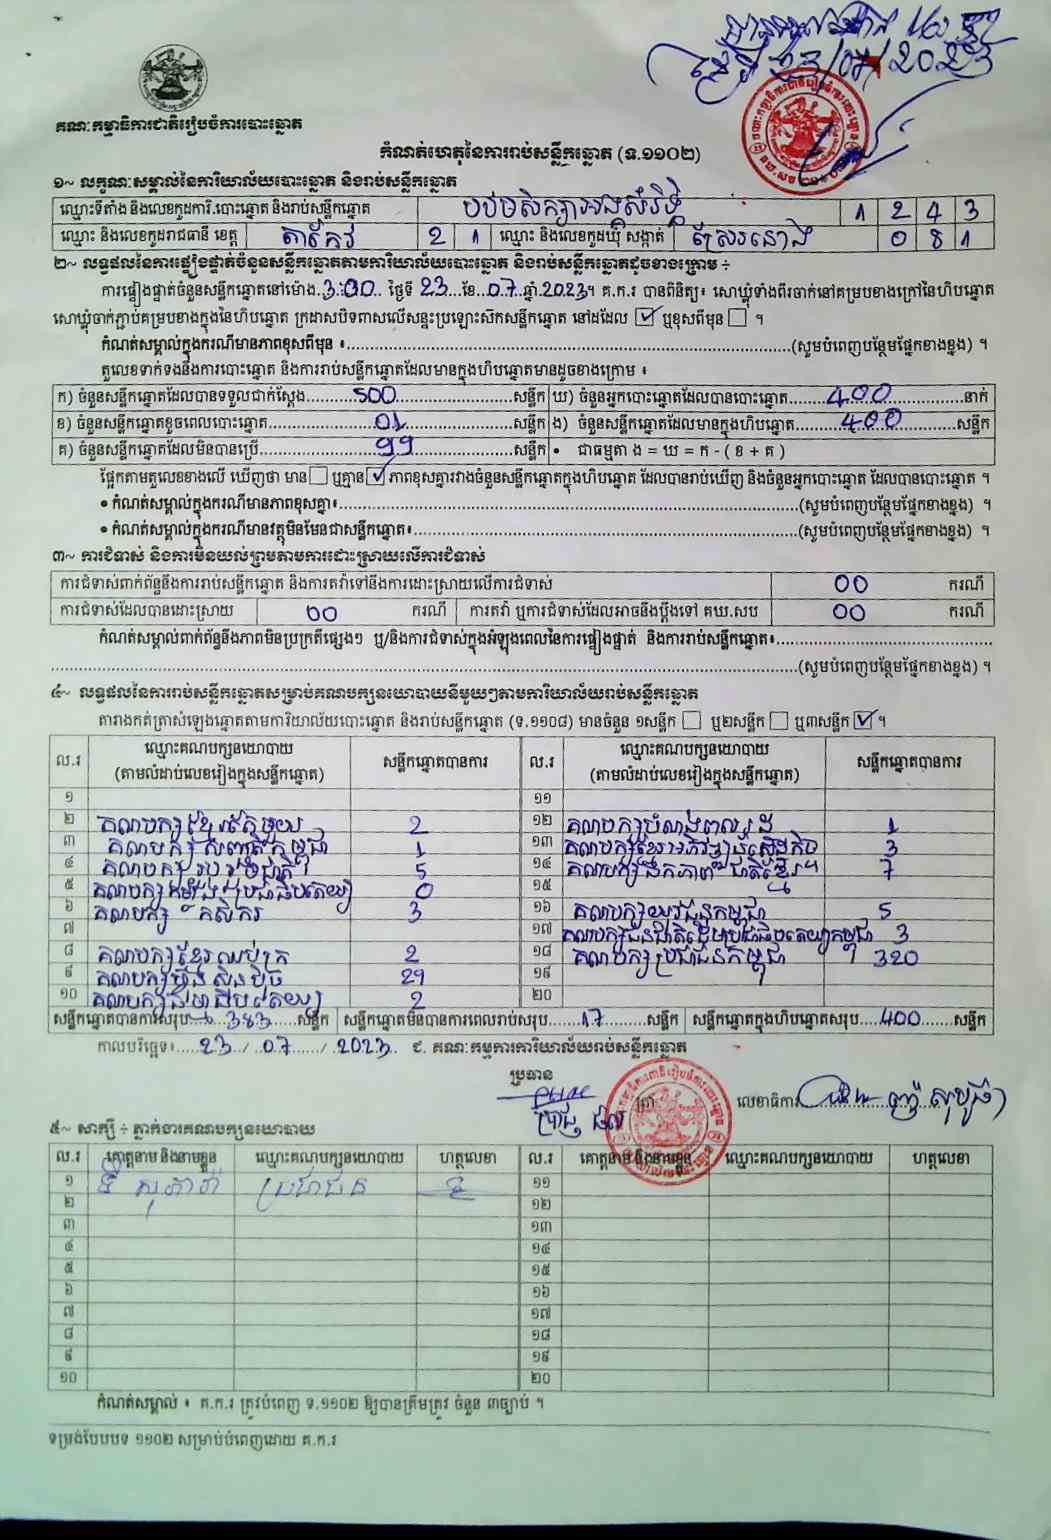 គណៈកម្មាធិការជាតិរៀបចំការបោះឆ្នោត
កំណត់ហេតុនៃការរាប់សន្លឹកឆ្នោត (ទ.១១០២)
១~ លក្ខណៈសម្គាល់នៃការិយាល័យបោះឆ្នោត និងរាប់សន្លឹកឆ្នោត
ឈ្មោះទីតាំង និងលេខកូដការិ.បោះឆ្នោត និងរាប់សន្លឹកឆ្នោត បឋមសិក្សាអង្គសំរិទ្ធិ 1 2 4 3
ឈ្មោះ និងលេខកូដរាជធានី ខេត្ត តាកែវ 2 1 ឈ្មោះ និងលេខកូដឃុំ សង្កាត់ ស្រែរនោង 0 8 1
២~ លទ្ធផលនៃការផ្ទៀងផ្ទាត់ចំនួនសន្លឹកឆ្នោតតាមការិយាល័យបោះឆ្នោត និងរាប់សន្លឹកឆ្នោតដូចខាងក្រោម ÷
ការផ្ទៀងផ្ទាត់ចំនួនសន្លឹកឆ្នោតនៅម៉ោង 3:00 ថ្ងៃទី 23 ខែ 07 ឆ្នាំ 2023។ គ.ក.រ បានពិនិត្យ៖ សោឃ្លុំទាំងពីរចាក់នៅគម្របខាងក្រៅនៃហិបឆ្នោត
សោឃ្លុំចាក់ភ្ជាប់គម្របខាងក្នុងនៃហិបឆ្នោត ក្រដាសបិទពាសលើសន្ទះប្រឡោះសិកសន្លឹកឆ្នោត នៅដដែល ☑ ឬខុសពីមុន ☐ ។
កំណត់សម្គាល់ក្នុងករណីមានភាពខុសពីមុន ៖ (សូមបំពេញបន្ថែមផ្នែកខាងខ្នង) ។
តួលេខទាក់ទងនឹងការបោះឆ្នោត និងការរាប់សន្លឹកឆ្នោតដែលមានក្នុងហិបឆ្នោតមានដូចខាងក្រោម ៖
ក) ចំនួនសន្លឹកឆ្នោតដែលបានទទួលជាក់ស្តែង 500 សន្លឹក ឃ) ចំនួនអ្នកបោះឆ្នោតដែលបានបោះឆ្នោត 400 នាក់
ខ) ចំនួនសន្លឹកឆ្នោតខូចពេលបោះឆ្នោត 01 សន្លឹក ង) ចំនួនសន្លឹកឆ្នោតដែលមានក្នុងហិបឆ្នោត 400 សន្លឹក
គ) ចំនួនសន្លឹកឆ្នោតដែលមិនបានប្រើ 99 សន្លឹក • ជាធម្មតា ង = ឃ = ក - ( ខ + គ )
ផ្អែកតាមតួលេខខាងលើ ឃើញថា មាន ☐ ឬគ្មាន ☑ ភាពខុសគ្នារវាងចំនួនសន្លឹកឆ្នោតក្នុងហិបឆ្នោត ដែលបានរាប់ឃើញ និងចំនួនអ្នកបោះឆ្នោត ដែលបានបោះឆ្នោត ។
• កំណត់សម្គាល់ក្នុងករណីមានភាពខុសគ្នា៖ (សូមបំពេញបន្ថែមផ្នែកខាងខ្នង) ។
• កំណត់សម្គាល់ក្នុងករណីមានវត្ថុមិនមែនជាសន្លឹកឆ្នោត៖ (សូមបំពេញបន្ថែមផ្នែកខាងខ្នង) ។
៣~ ការជំទាស់ និងការមិនយល់ព្រមតាមការដោះស្រាយលើការជំទាស់
ការជំទាស់ពាក់ព័ន្ធនឹងការរាប់សន្លឹកឆ្នោត និងការតវ៉ាទៅនឹងការដោះស្រាយលើការជំទាស់ 00 ករណី
ការជំទាស់ដែលបានដោះស្រាយ 00 ករណី ការតវ៉ា ឬការជំទាស់ដែលអាចនឹងប្តឹងទៅ គឃ.សប 00 ករណី
កំណត់សម្គាល់ពាក់ព័ន្ធនឹងភាពមិនប្រក្រតីផ្សេងៗ ឬ/និងការជំទាស់ក្នុងអំឡុងពេលនៃការផ្ទៀងផ្ទាត់ និងការរាប់សន្លឹកឆ្នោត៖
(សូមបំពេញបន្ថែមផ្នែកខាងខ្នង) ។
៤~ លទ្ធផលនៃការរាប់សន្លឹកឆ្នោតសម្រាប់គណបក្សនយោបាយនីមួយៗតាមការិយាល័យរាប់សន្លឹកឆ្នោត
តារាងកត់ត្រាសំឡេងឆ្នោតតាមការិយាល័យបោះឆ្នោត និងរាប់សន្លឹកឆ្នោត (ទ.១១០៨) មានចំនួន ១សន្លឹក ☐ ឬ២សន្លឹក ☐ ឬ៣សន្លឹក ☑ ។
ល.រ ឈ្មោះគណបក្សនយោបាយ (តាមលំដាប់លេខរៀងក្នុងសន្លឹកឆ្នោត) សន្លឹកឆ្នោតបានការ ល.រ ឈ្មោះគណបក្សនយោបាយ (តាមលំដាប់លេខរៀងក្នុងសន្លឹកឆ្នោត) សន្លឹកឆ្នោតបានការ
១ ១១
២ គណបក្សខ្មែរតែមួយ 2 ១២ គណបក្សបំណងពលរដ្ឋ 1
៣ គណបក្ស សញ្ជាតិកម្ពុជា 1 ១៣ គណបក្សខ្មែរអភិវឌ្ឍន៍សេដ្ឋកិច្ច 3
៤ គណបក្ស របបថ្មី 5 ១៤ គណបក្សឯកភាពជាតិខ្មែរ។ 7
៥ គណបក្សកម្លាំងប្រជាធិបតេយ្យ 0 ១៥
៦ គណបក្ស កសិករ 3 ១៦ គណបក្សយុវជនកម្ពុជា 5
៧ ១៧ គណបក្សជនជាតិដើមប្រជាធិបតេយ្យកម្ពុជា 3
៨ គណបក្សខ្មែរឈប់ក្រ 2 ១៨ គណបក្សប្រជាជនកម្ពុជា 320
៩ គណបក្សហ្វ៊ុនស៊ិនប៉ិច 29 ១៩
១០ គណបក្ស 2 ២០
សន្លឹកឆ្នោតបានការសរុប 383 សន្លឹក សន្លឹកឆ្នោតមិនបានការពេលរាប់សរុប 17 សន្លឹក សន្លឹកឆ្នោតក្នុងហិបឆ្នោតសរុប 400 សន្លឹក
កាលបរិច្ឆេទ៖ 23 / 07 / 2023 ជ. គណៈកម្មការការិយាល័យរាប់សន្លឹកឆ្នោត
ប្រធាន
ត្រា លេខាធិការ
៥~ សាក្សី ÷ ភ្នាក់ងារគណបក្សនយោបាយ
ល.រ គោត្តនាម និងនាមខ្លួន ឈ្មោះគណបក្សនយោបាយ ហត្ថលេខា ល.រ គោត្តនាម និងនាមខ្លួន ឈ្មោះគណបក្សនយោបាយ ហត្ថលេខា
១ ប្រជាជន ១១
២ ១២
៣ ១៣
៤ ១៤
៥ ១៥
៦ ១៦
៧ ១៧
៨ ១៨
៩ ១៩
១០ ២០
កំណត់សម្គាល់ ៖ គ.ក.រ ត្រូវបំពេញ ទ.១១០២ ឱ្យបានត្រឹមត្រូវ ចំនួន ៣ច្បាប់ ។
ទម្រង់បែបបទ ១១០២ សម្រាប់បំពេញដោយ គ.ក.រ